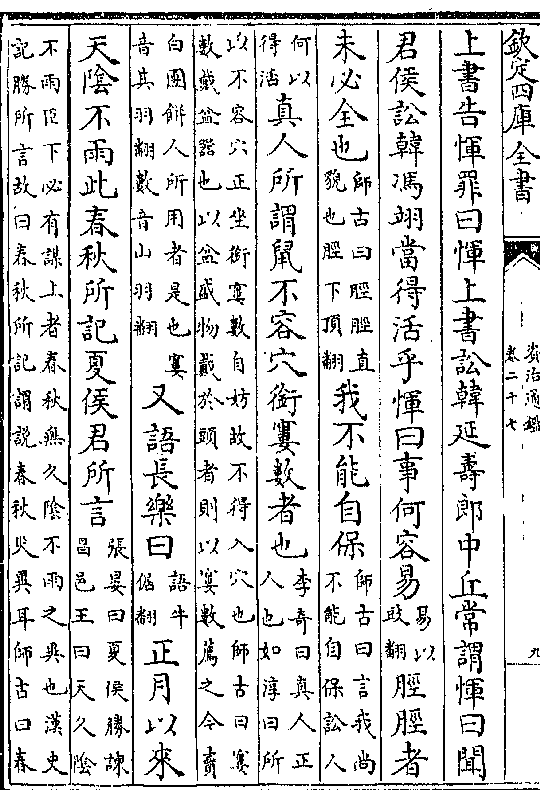 欽定四庫全書
資治通鑑
卷二十七
九
上書告惲罪曰惲上書訟韓延壽郎中丘常謂惲曰聞
君侯訟韓馮翊當得活乎惲曰事何容易易以豉翻脛脛者
未必全也師古曰脛脛直貌也脛下頂翻我不能自保師古曰言我尚不能自保訟人
何以得活真人所謂鼠不容穴銜窶數者也李奇曰真人正人也如淳曰所
以不容穴正坐銜窶數自妨故不得入穴也師古曰窶
數戴盆器也以盆盛物戴於頭者則以窶數薦之今賣
白團餅人所用者是也窶音其羽翻數音山羽翻又語長樂曰語牛倨翻正月以來
天陰不雨此春秋所記夏侯君所言張晏曰夏侯勝諫昌邑王曰天久陰
不雨臣下必有謀上者春秋無久陰不雨之異也漢史
記勝所言故曰春秋所記謂說春秋災異耳師古曰春